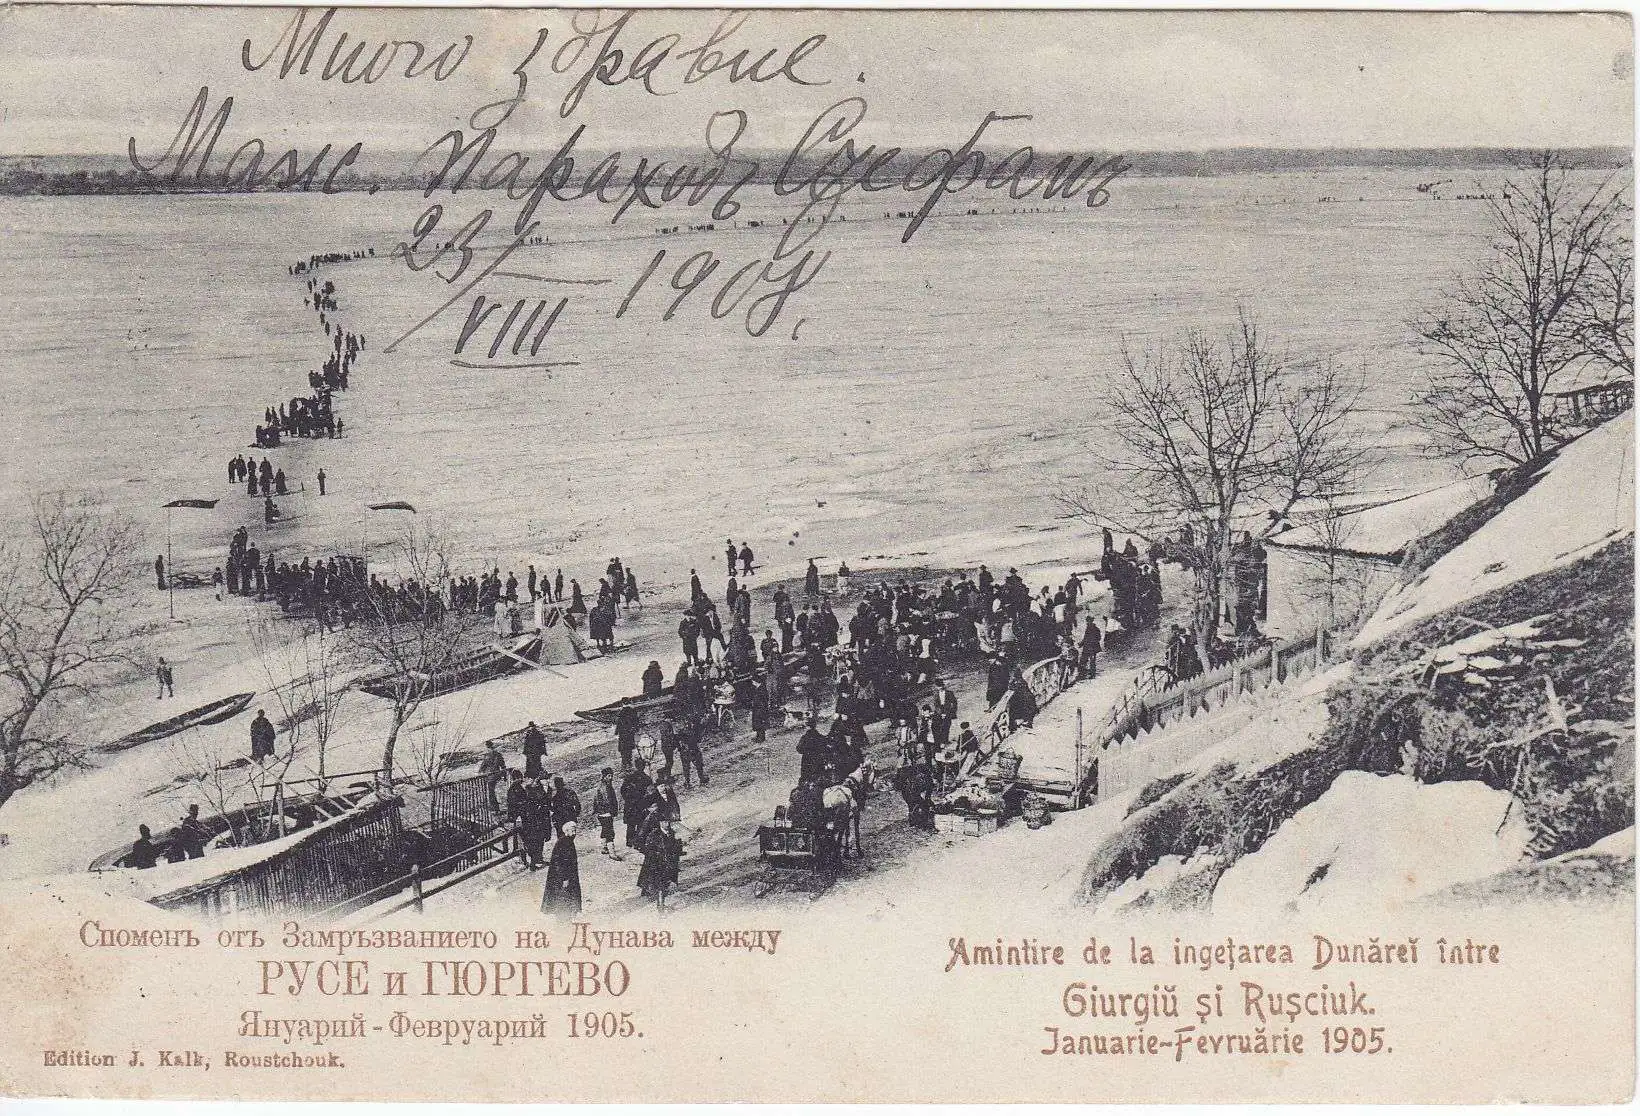 Много здраве.
Маж. Параходъ Стефанъ
23/VIII 1908,
Споменъ отъ Замръзванието на Дунава между
РУСЕ и ГЮРГЕВО
Януарий-Февруарий 1905.
Edition J. Kalk, Roustchouk.
Amintire de la ingeţarea Dunăreĭ între
Giurgiŭ şi Ruşciuk.
Januarie-Fevruărie 1905.